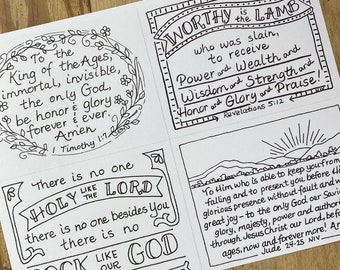 To the
King of the Ages,
immortal, invisible,
the only God,
be honor & glory
forever & ever.
Amen
1 Timothy 1:7
WORTHY is the LAMB
who was slain,
to receive
Power and Wealth and
Wisdom and Strength and
Honor and Glory and Praise!
Revelations 5:12
There is no one
HOLY LIKE THE LORD
there is no one besides You
there is no
ROCK LIKE OUR GOD
To Him who is able to keep you from
falling and to present you before His
glorious presence without fault and with
great joy - to the only God our Savior
glory, majesty, power and authority
through Jesus Christ our Lord, before
ages, now and forever more! Amen
Jude 24-25 NIV